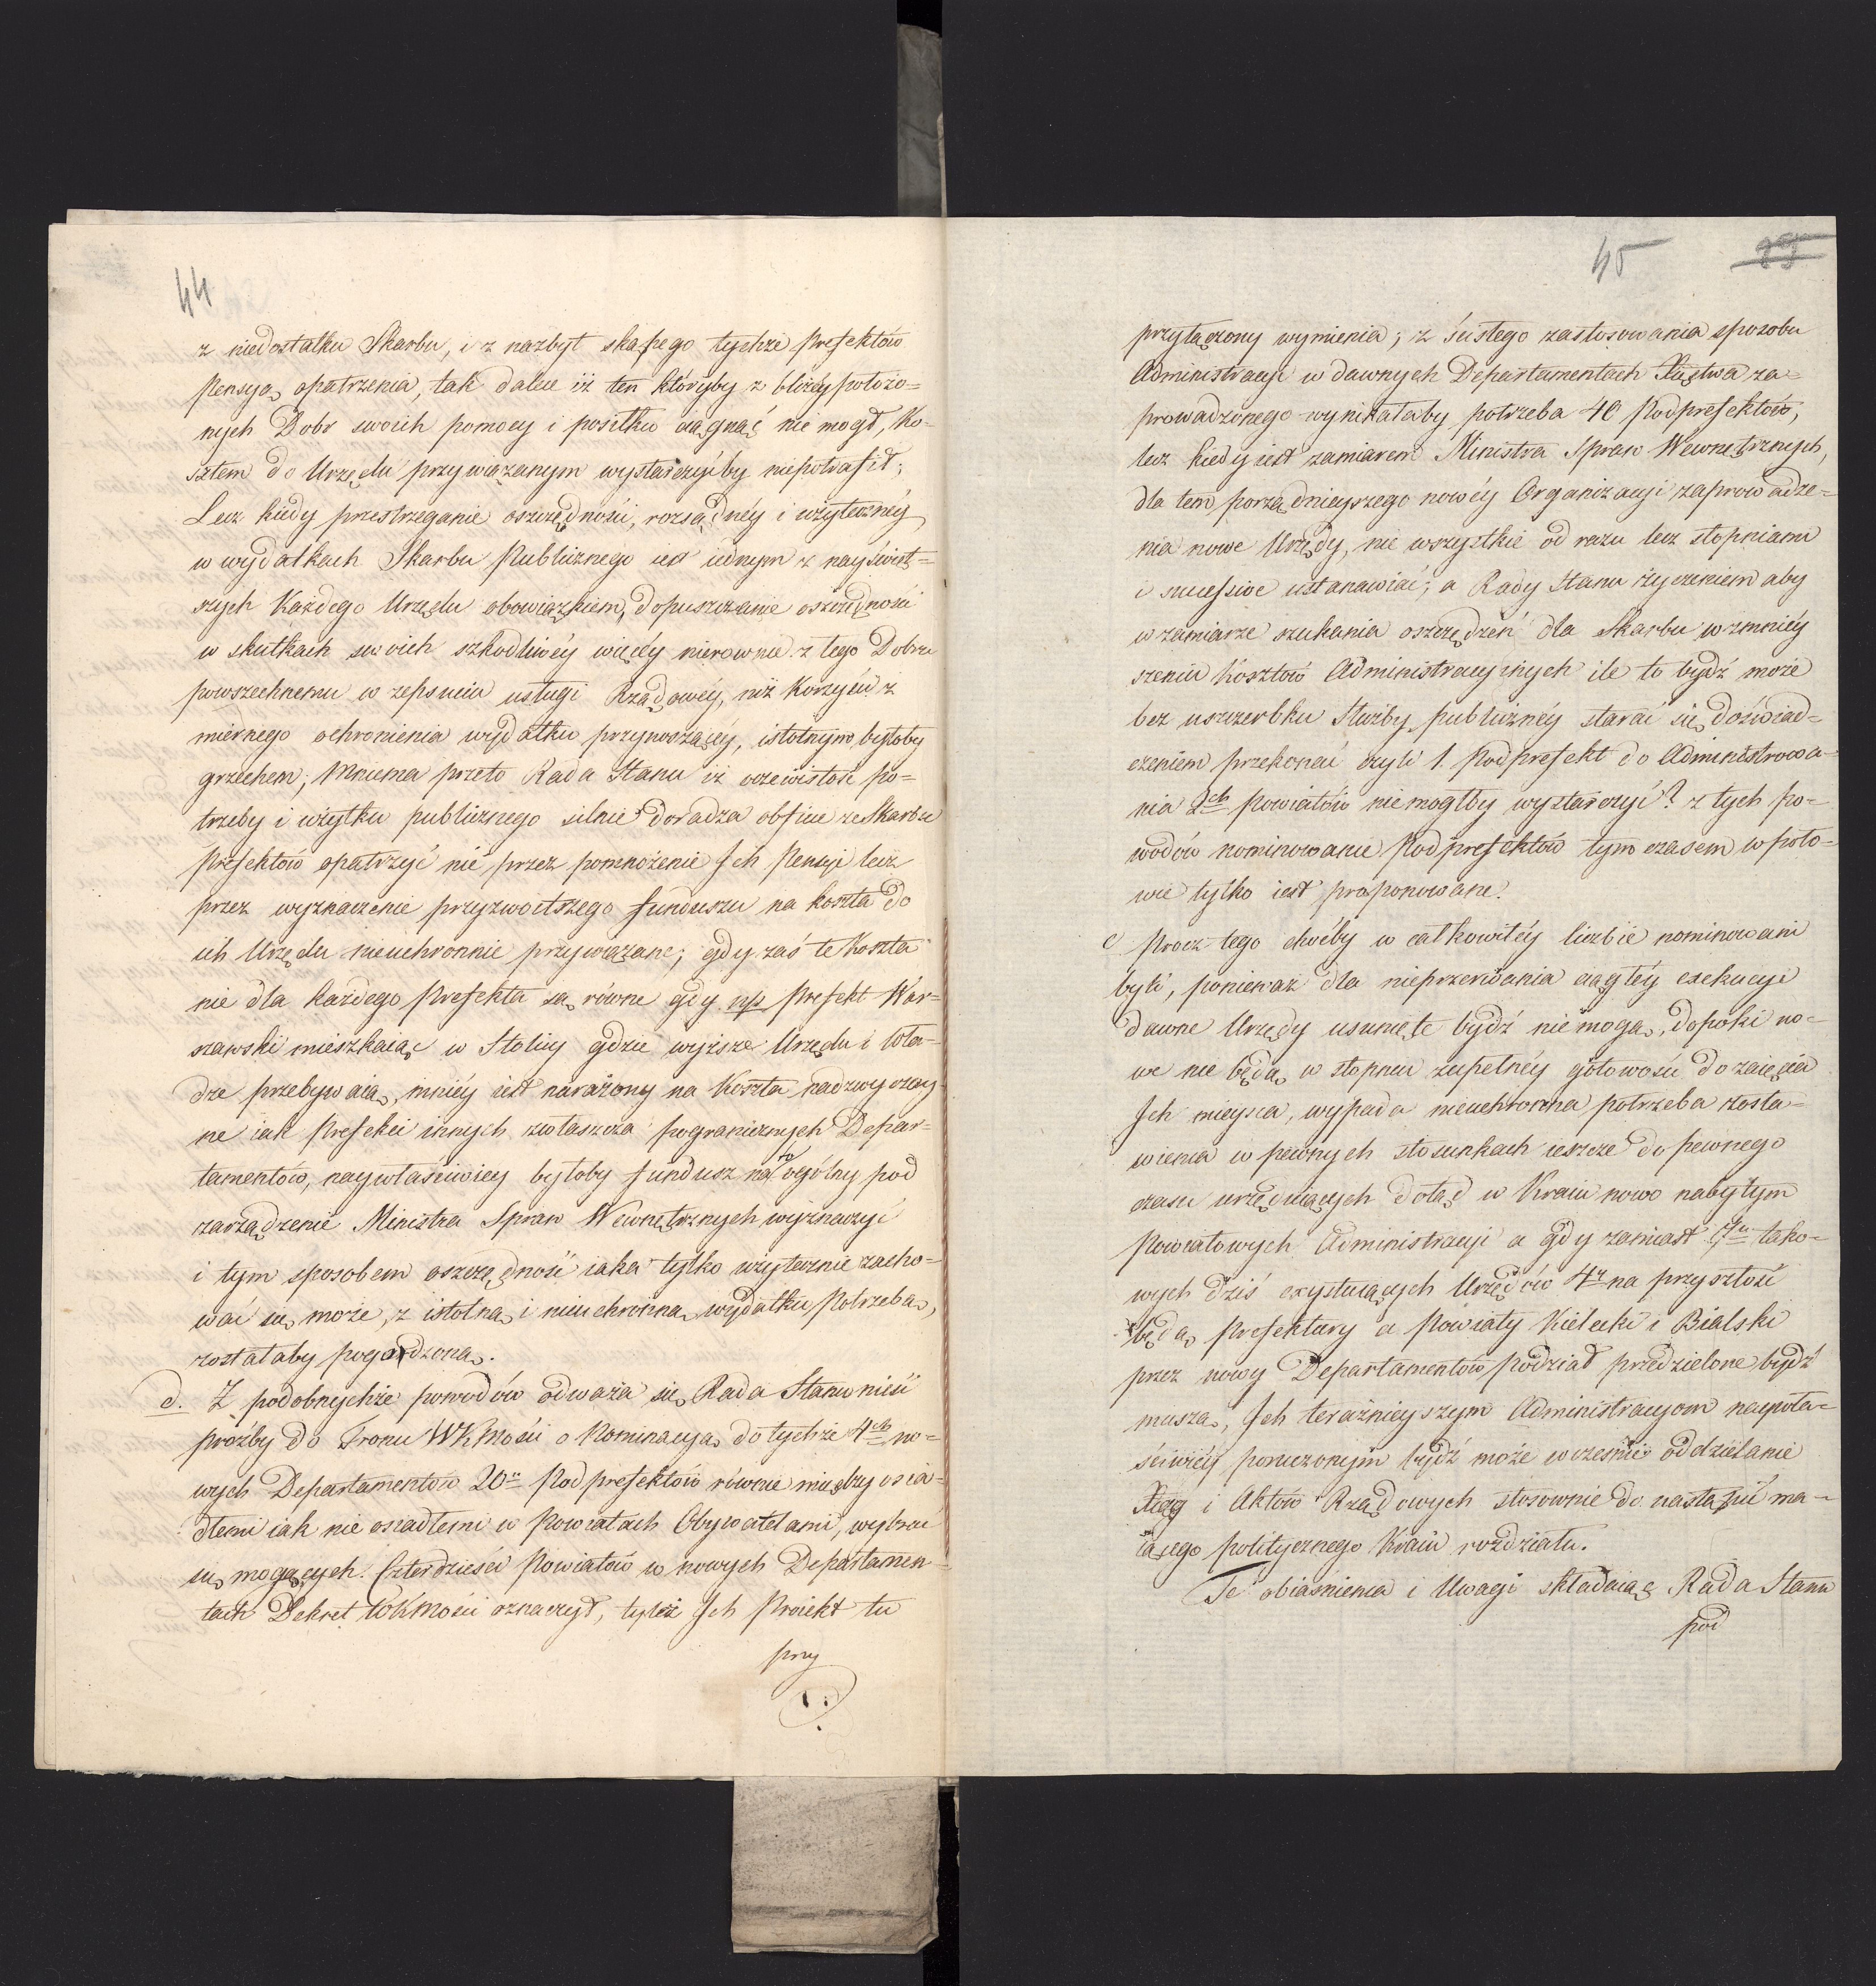 44
z niedostatku Skarbu, i z nazbyt skąpego tychże Prefektów
Pensyą opatrzenia, tak dalece iż ten któryby z bliżey położo=
nych Dobr swoich pomocy i posiłku ciągnąć nie mogł, Ko-
sztem do Urzędu przywiązanym wystarczyćby niepotrafił;
Lecz kiedy przestrzeganie oszczędności, rozsądnéy i użytecznéy
w wydatkach Skarbu Publicznego iest iednym z nayświęt=
szych Każdego Urzędu obowiązkiem, dopuszczanie oszczędności
w skutkach swoich szkodliwéy więcéy nierownie z tego Dobru
powszechnemu w zepsuciu usługi Rządowéy, niż Korzyści z
miernego ochronienia wydatku przynoszącéy, istotnym byłoby
grzechem; Mniema przeto Rada Stanu iż oczewistość po=
trzeby i użytku publicznego silnie doradza obficie ze Skarbu
Prefektów opatrzyć nie przez pomnożenie Ich Pensyi lecz
przez wyznaczenie przyzwoitszego funduszu na koszta do
ich Urzędu nieuchronnie przywiązane; gdy zaś te Koszta
nie dla każdego Prefekta są równe gdy np. Prefekt War=
szawski mieszkaiąc w Stolicy gdzie wyższe Urzędu i Wła-
dze przebywaią, mniéy iest narażony na Koszta nadzwyczay-
ne iak Prefekci innych zwłaszcza pogranicznych Depar-
tamentów, naywłaściwiey byłoby fundusz na to ogólny pod
zarządzenie Ministra Spraw Wewnętrznych wyznaczyć
i tym sposobem oszczędność iaka tylko użytecznie zacho-
wać się może, z istotną i nieuchronną wydatku Potrzebą,
zostałaby pogodzoną.
d. Z podobnychże powodów odważa się Rada Stanu nieść
proźby do Tronu WKMości o Nominacyą do tychże 4ch no=
wych Departamentów 20u Podprefektów równie między osia-
dłemi iak nie osiadłemi w Powiatach Obywatelami, wybrać
się mogących. Czterdzieści Powiatów w nowych Departamen-
tach Dekret WKMości oznaczył, tyleż Ich Proiekt tu
przy
45
przyłączony wymienia; z ścisłego zastosowania sposobu
Administracyi w dawnych Departamentach Xięstwa za=
prowadzonego wynikałaby potrzeba 40 Podprefektów,
lecz kiedy iest zamiarem Ministra Spraw Wewnętrznych,
dla tem porządnieyszego nowéy Organizacyi zaprowadze=
nia nowe Urzędy, nie wszystkie od razu lecz stopniami
i successive ustanawiać; a Rady Stanu życzeniem aby
w zamiarze szukania oszczędzeń dla Skarbu w zmniéy
szeniu Kosztów Administracyinych ile to bydź może
bez uszczerbku Służby publicznéy starać się doświad=
czeniem przekonać czyli 1. Podprefekt do Administrowa-
nia 2ch Powiatów niemogłby wystarczyć? z tych po-
wodów nominowanie Podprefektów tym czasem w poło-
wie tylko iest proponowane.
e Procz tego choćby w całkowitéy liczbie nominowani
byli, ponieważ dla nieprzerwania ciągłéy exekucyi
dawne Urzędy usunięte bydź niemogą, dopoki no-
we nie będą w stopniu zupełnéy gotowości do zaięcia
Ich mieysca, wypada nieuchronna potrzeba zosta=
wienia w pewnych stosunkach ieszcze do pewnego
czasu urzęduiących dotąd w Kraiu nowo nabytym
Powiatowych Administracyi a gdy zamiast 7u tako-
wych dziś exystuiących Urzędów 4ry na przyszłość
będą Prefektury a Powiaty Kielecki i Bialski
przez nowy Departamentów podział przedzielone bydź
muszą, Ich teraźnieyszym Administracyom naywła-
ściwiéy poruczonym bydź może wcześnie oddzielanie
Xiąg i Aktów Rządowych stosownie do nastąpić ma-
iącego politycznego Kraiu rozdziału.
Te obiaśnienia i Uwagi składaiąc Rada Stanu
pod